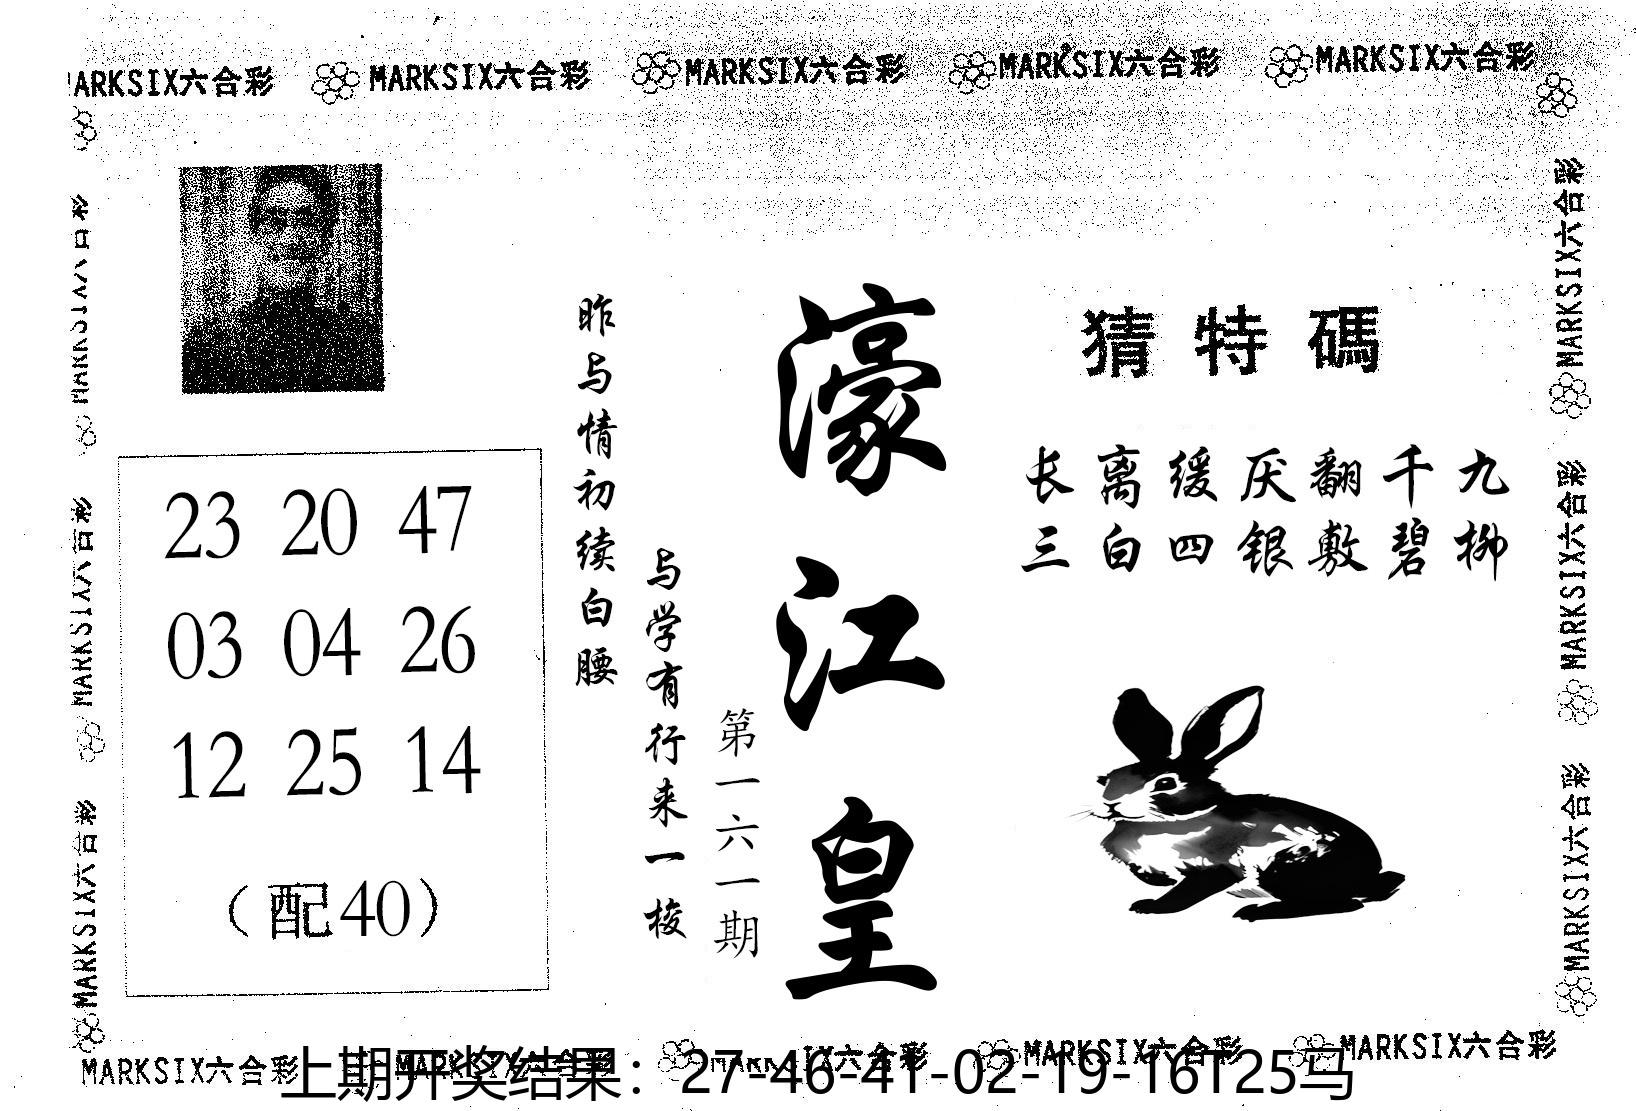 MARKSIX六合彩 MARKSIX六合彩 MARKSIX六合彩 MARKSIX六合彩 MARKSIX六合彩
猜特碼
长离缓厌翻千九
三白四银敷碧柳
濠江皇
第一六一期
与学有行来一梭
昨与情初续白腰
23 20 47
03 04 26
12 25 14
（配40）
MARKSIX六合彩
MARKSIX六合彩
MARKSIX六合彩
MARKSIX六合彩
MARKSIX六合彩
MARKSIX六合彩
MARKSIX六合彩 MARKSIX六合彩 MARKSIX六合彩 MARKSIX六合彩 MARKSIX六合彩
上期开奖结果：27-46-41-02-19-16T25马